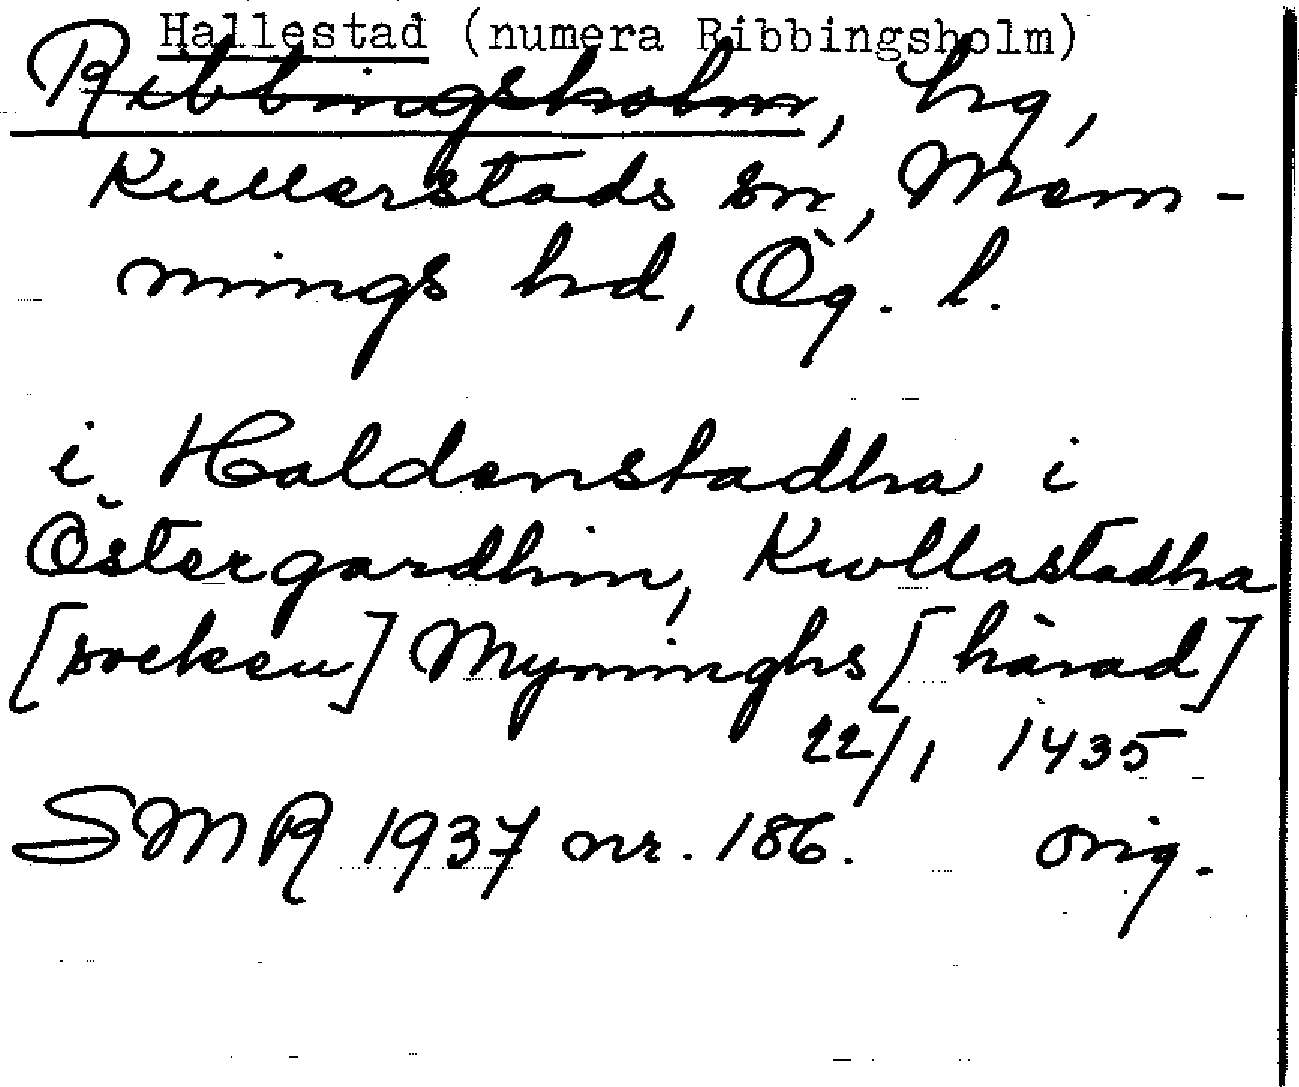 Hallestad (numera Ribbingsholm)
Ribbingsholm, hg,
Kullerstads sn, Mem-
mings hd, Ög. l.
i Haldenstadha i
Östergardhin, Kwllastadha
[socken] Mymminghs [härad]
22/1 1435
SMR 1937 nr. 186. orig.